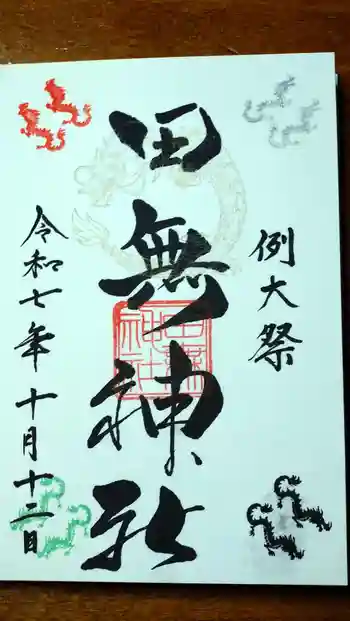 例大祭
田無神社
令和七年十月十二日
田無
神社